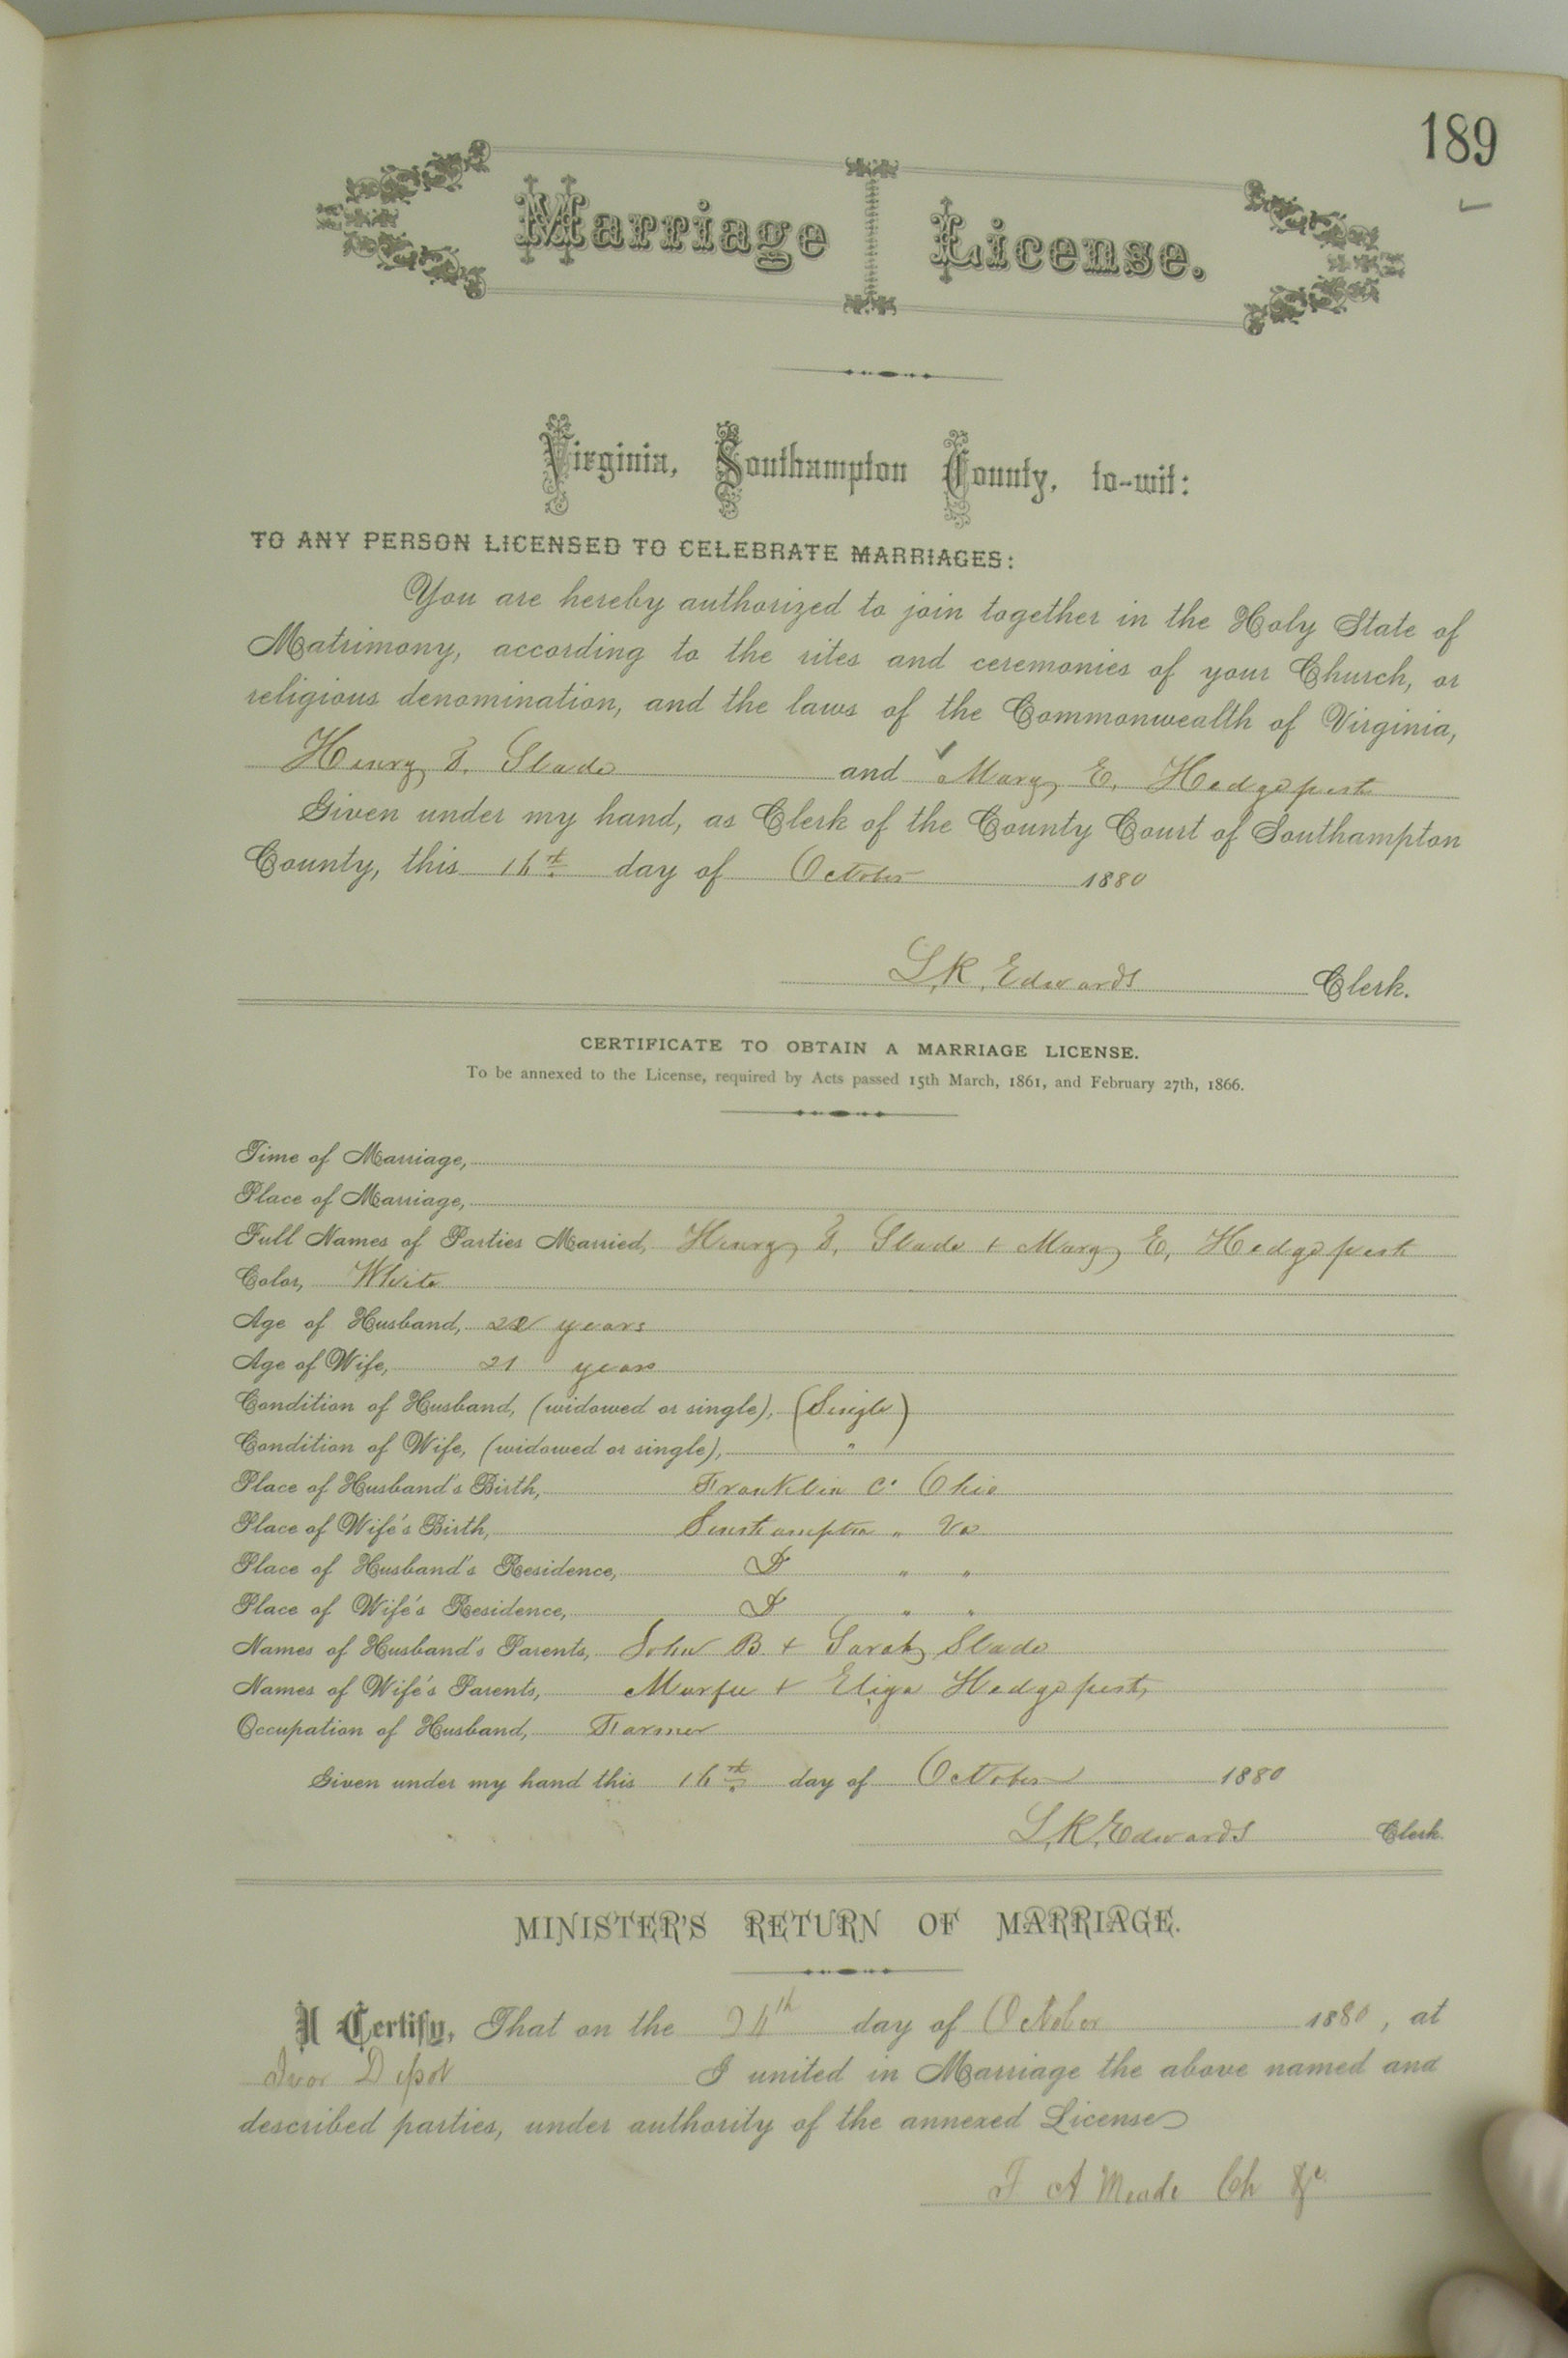 189
Marriage License.
Virginia, Southampton County, to-wit:
TO ANY PERSON LICENSED TO CELEBRATE MARRIAGES:
You are hereby authorized to join together in the Holy State of
Matrimony, according to the rites and ceremonies of your Church, or
religious denomination, and the laws of the Commonwealth of Virginia,
Henry Slade and Mary E. Hedgepeth
Given under my hand, as Clerk of the County Court of Southampton
County, this 16th day of October 1880
L. R. Edwards Clerk.
CERTIFICATE TO OBTAIN A MARRIAGE LICENSE.
To be annexed to the License, required by Acts passed 15th March, 1861, and February 27th, 1866.
Time of Marriage,
Place of Marriage,
Full Names of Parties Married, Henry Slade + Mary E. Hedgepeth
Color, White
Age of Husband, 22 years
Age of Wife, 21 years
Condition of Husband, (widowed or single), (Single)
Condition of Wife, (widowed or single), "
Place of Husband's Birth, Franklin Co Ohio
Place of Wife's Birth, Southampton " Va
Place of Husband's Residence, Do " "
Place of Wife's Residence, Do " "
Names of Husband's Parents, John B. + Sarah Slade
Names of Wife's Parents, + Eliza Hedgepeth
Occupation of Husband, Farmer
Given under my hand this 16th day of October 1880
L. R. Edwards Clerk.
MINISTER'S RETURN OF MARRIAGE.
I Certify, That on the 24th day of October 1880, at
Ivor Depot I united in Marriage the above named and
described parties, under authority of the annexed License
Meade